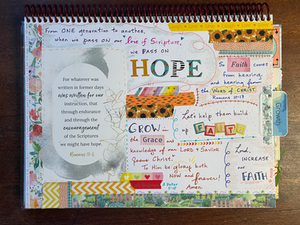 From ONE generation to another,
when we pass on our love of Scripture,
we PASS ON
HOPE
For whatever was
written in former days
was written for our
instruction, that
through endurance
and through the
encouragement
of the Scriptures
we might have hope.
Romans 15:4
So Faith comes
from hearing,
and hearing from
the Word of Christ.
Romans 10:17
Let's help them build
up FAITH
GROW
the Grace and
knowledge of our LORD & Savior
Jesus Christ.
To Him be glory both
Now and forever!
Amen.
2 Peter
Lord,
INCREASE
our
FAITH